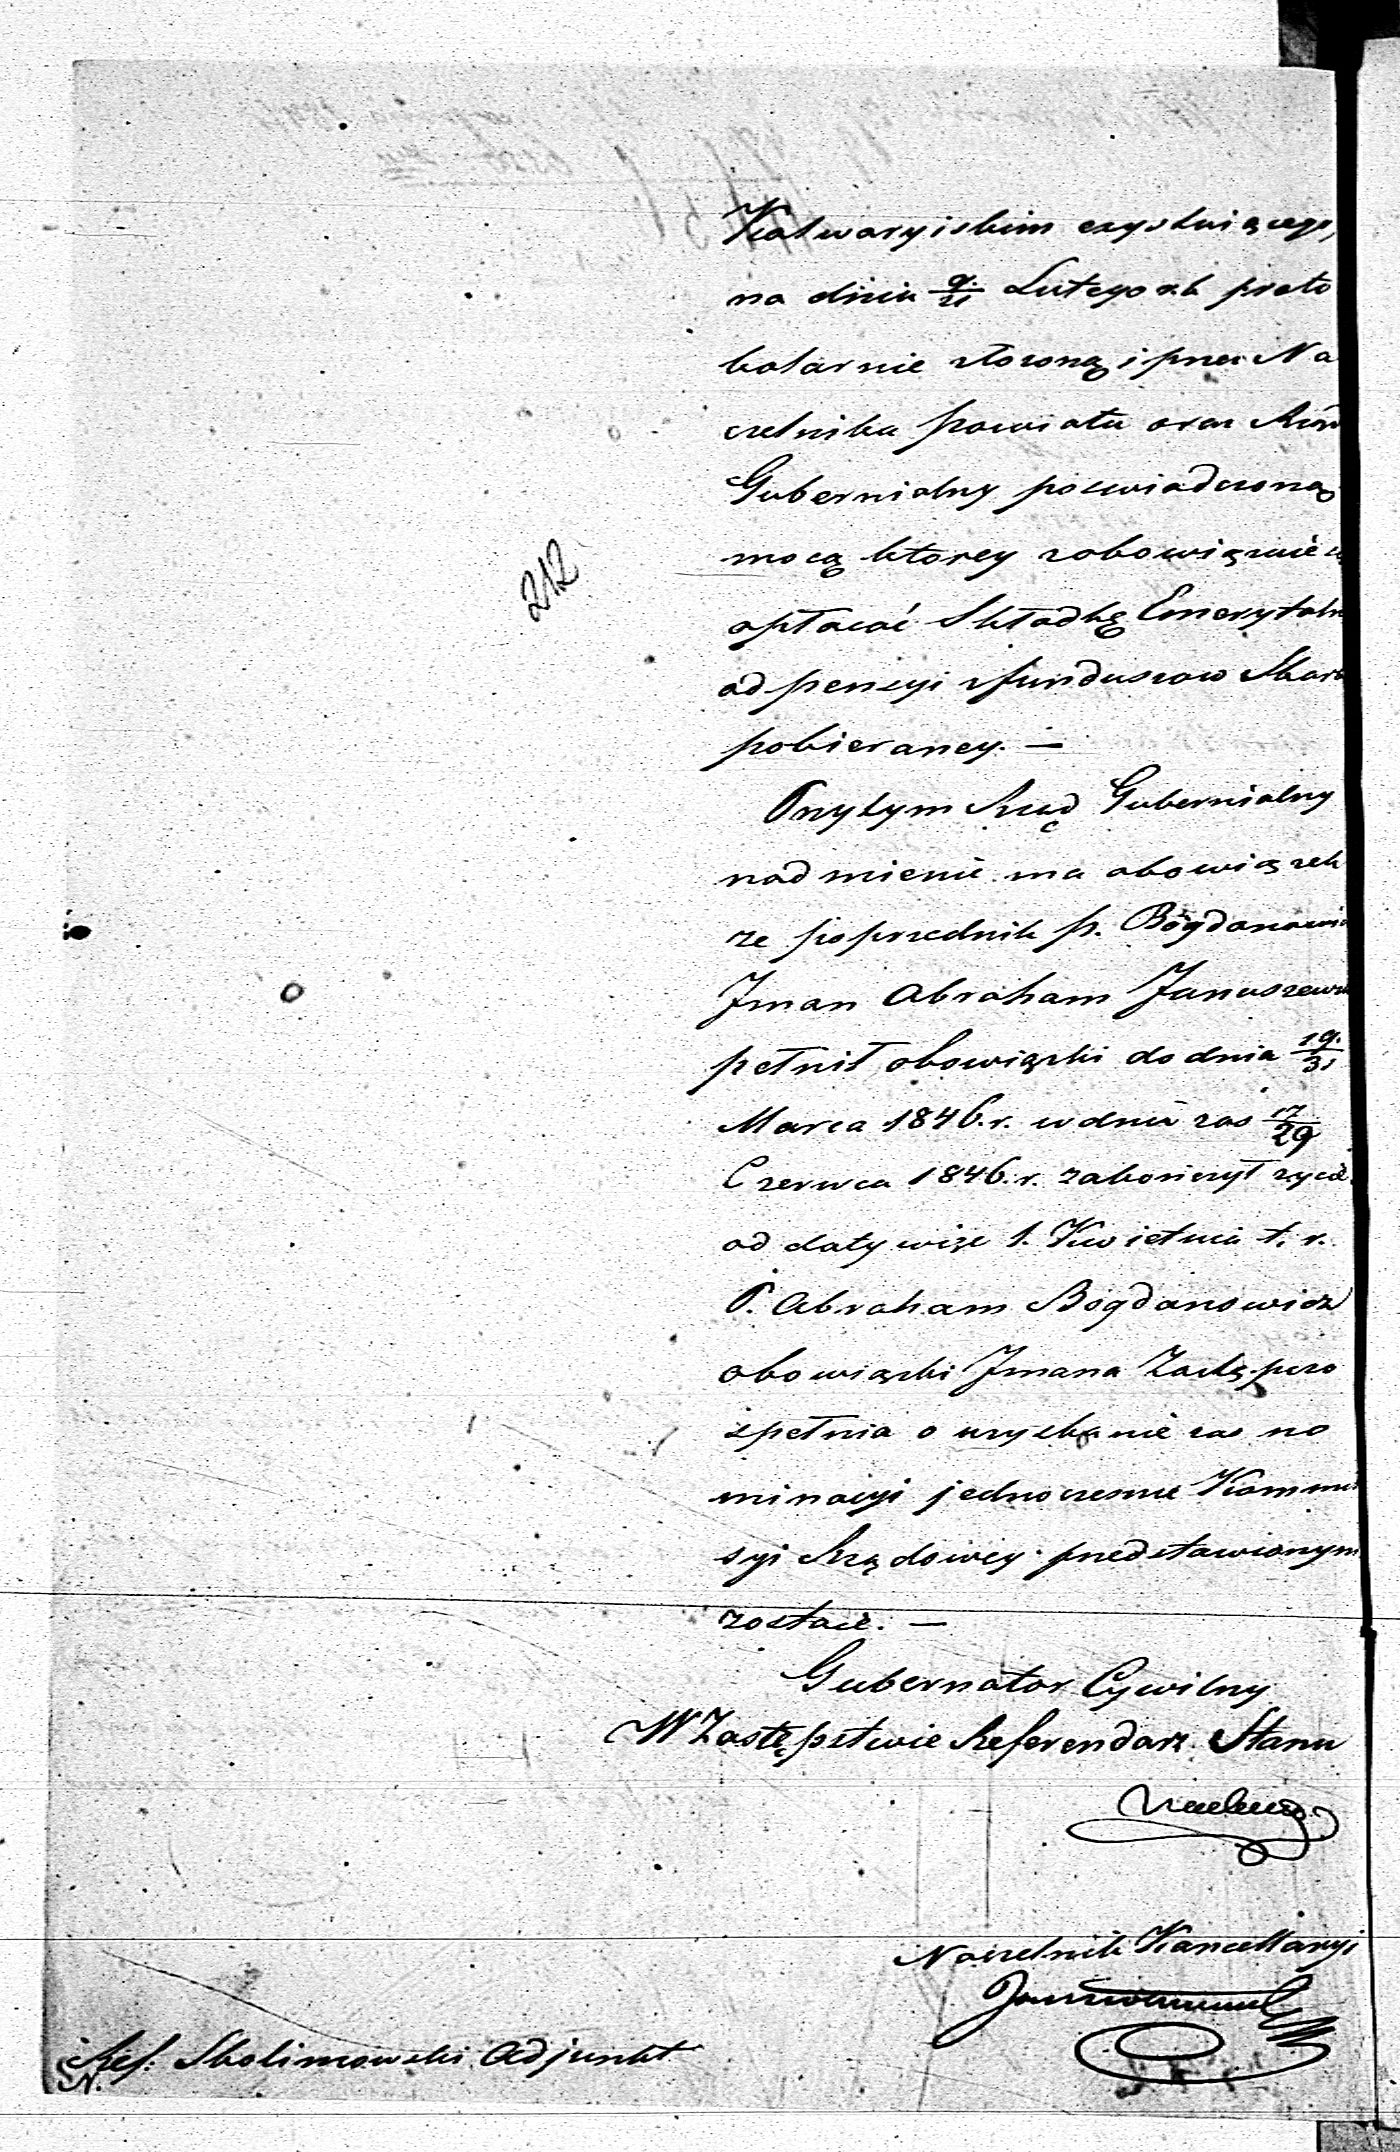 Kalwaryiskim exystuiącego,
na dniu 9/21 Lutego r.b. proto
kolarnie złozoną i przez Na
czelnika powiatu oraz Rząd
Gubernialny poswiadczoną
mocą ktorey zobowiązuie
opłacać Składkę Emerytaln
od pensyi z funduszow Skar
pobieraney. —
Przytym Rząd Gubernialny
nadmienić ma obowiązek
ze poprzednik p. Bogdanowi
Jman Abraham Januszewi
pełnił obowiązki do dnia 19/31
Marca 1846.r. w dniu zas 17/29
Czerwca 1846.r. zakończył zycie
od daty więc 1. Kwietnia t. r.
P. Abraham Bogdanowicz
obowiązki Jmana Zastępczo
spełnia o uzyskanie zas no
minacyi jednoczesnie Kommi
syi Rządowey przedstawionym
zostaie. —
212
Gubernator Cywilny
W Zastępstwie Referendarz Stanu
Naczelnik Kancellaryi
Ref: Skolimowski Adjunkt
N.